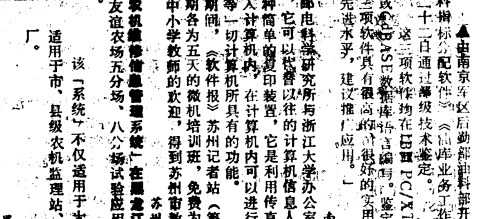 ▲由南京军区后勤部油料部开
料指标分配软件》《油库业务工作
二十二日通过部级技术鉴定。
这三项软件均在IBM PC/X
或dBASE数据库语言编写。鉴定
三项软件具有很高的和很好的实用
先进水平，建议推广应用。
邮电科学研究所与浙江大学办公室
，它可以代替以往的计算机信息人
种简单的复印装置，它是利用传真
入计算机内，在计算机内可以进行
等一切计算机所具有的功能。
期间，《软件报》苏州记者站（第
期各为五天的微机培训班，免费为
中小学教师的欢迎，得到苏州市教
苏州
农机维修信息管理系统”在黑龙江
友谊农场五分场、八分场试验应用
该“系统”不仅适用于大
适用于市、县级农机监理站、
厂。